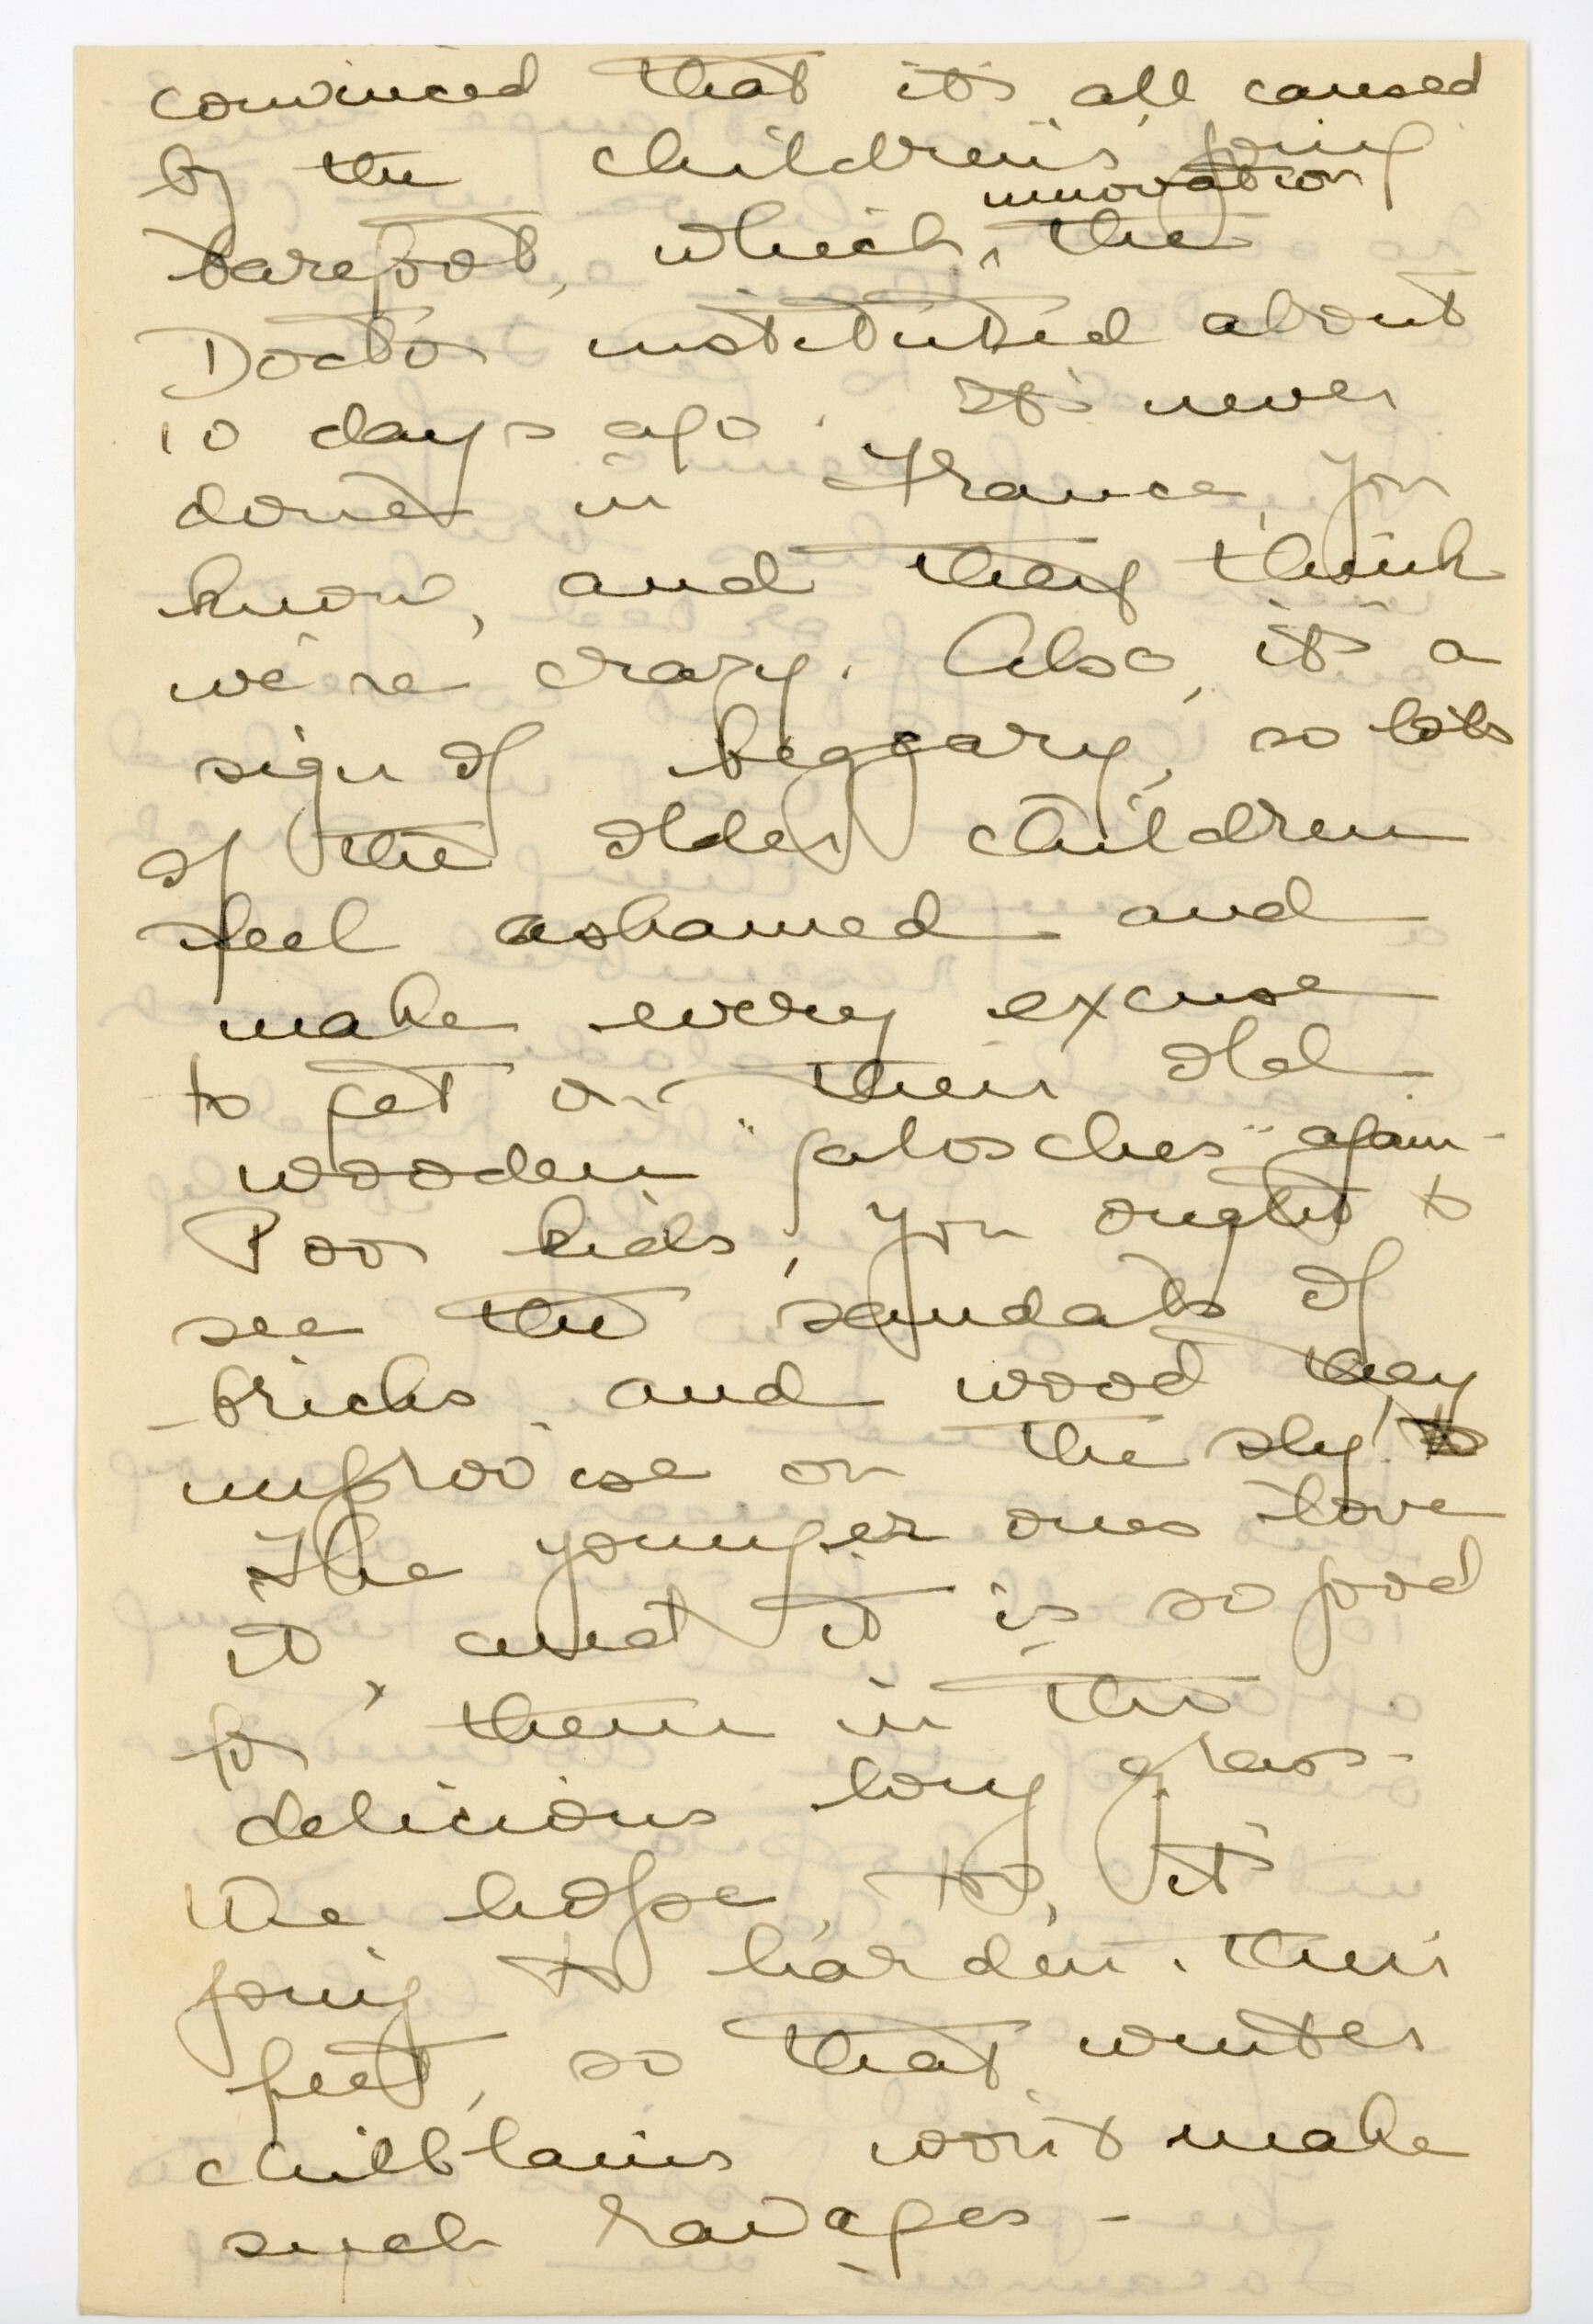 convinced that it's all caused
by the children's going
innovation
barefoot, which ^ the
Doctor instituted about
10 days ago. It's never
done in France, you
know, and they think
we're crazy. Also, it's a
sign of beggary, so lots
of the older children
feel ashamed and
make every excuse
to get on their old
wooden "galosches" again -
Poor kids, you ought to
see the sandals of
bricks and wood they
improvise on the sly!
The younger ones love
it, and it is so good
for them in this
delicious long grass -
We hope, too, it's
going to harden their
feet, so that winter
chilblains won't make
such ravages -